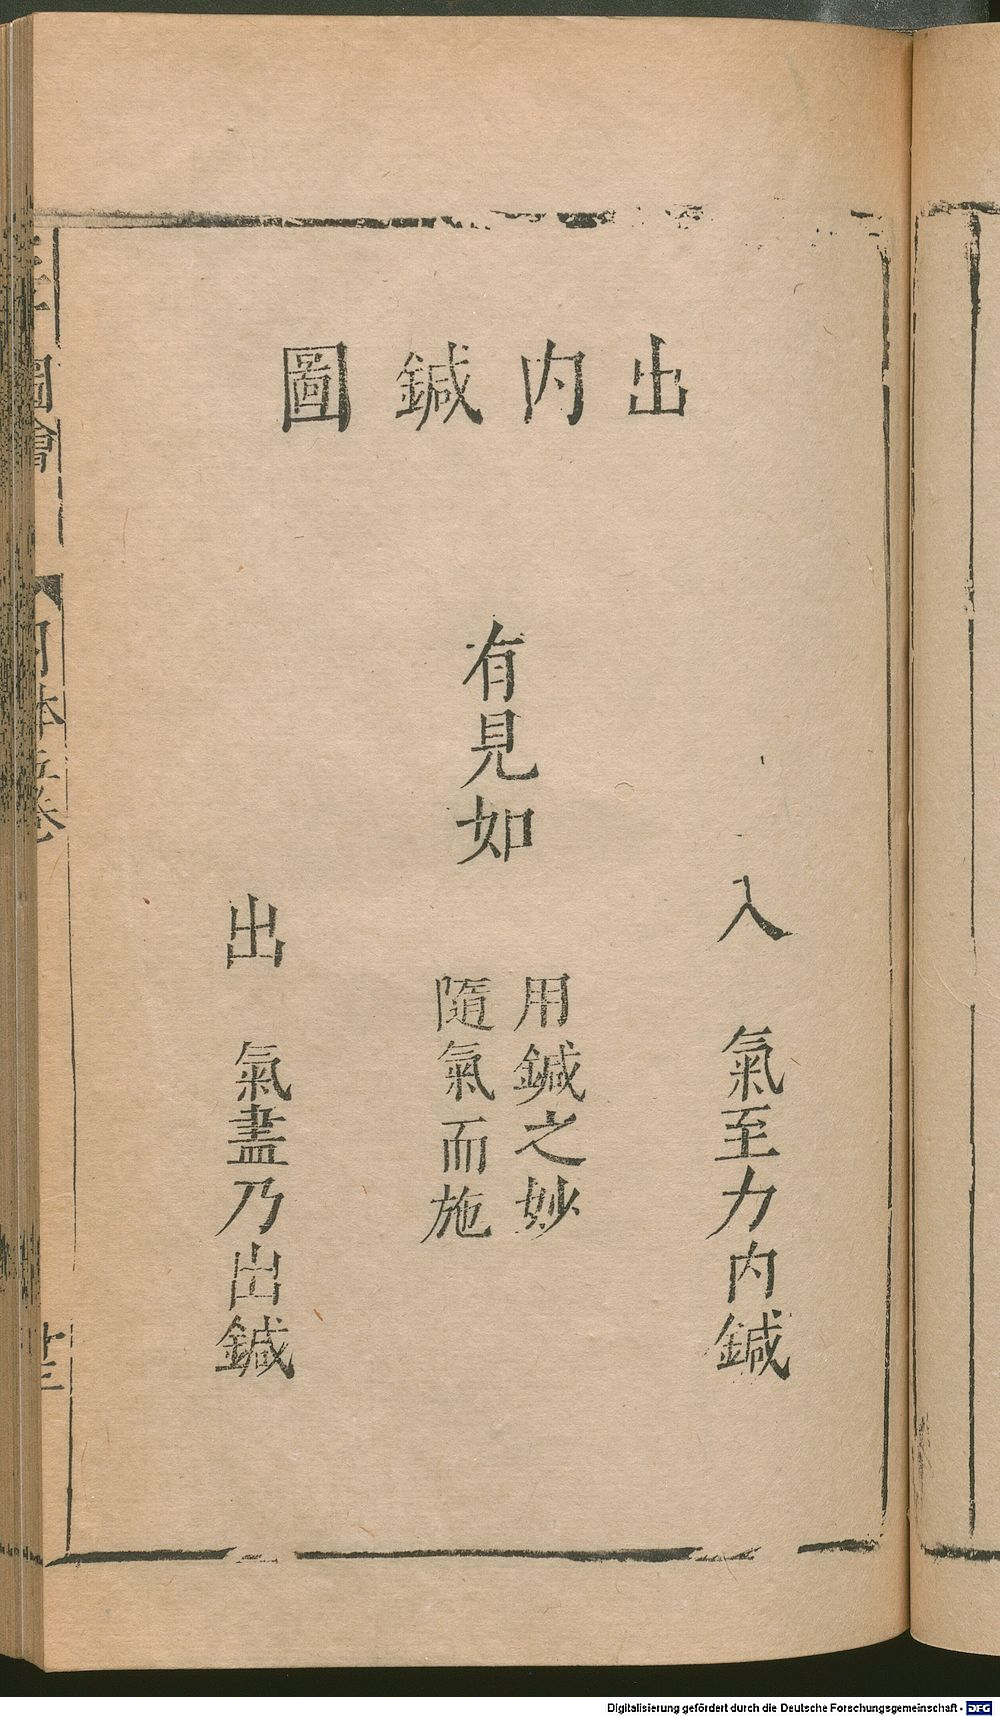 出内鍼圖
入
氣至力内鍼
有見如
用鍼之妙
隨氣而施
出
氣盡乃出鍼
圖會
卷
廿三
Digitalisierung gefördert durch die Deutsche Forschungsgemeinschaft - DFG